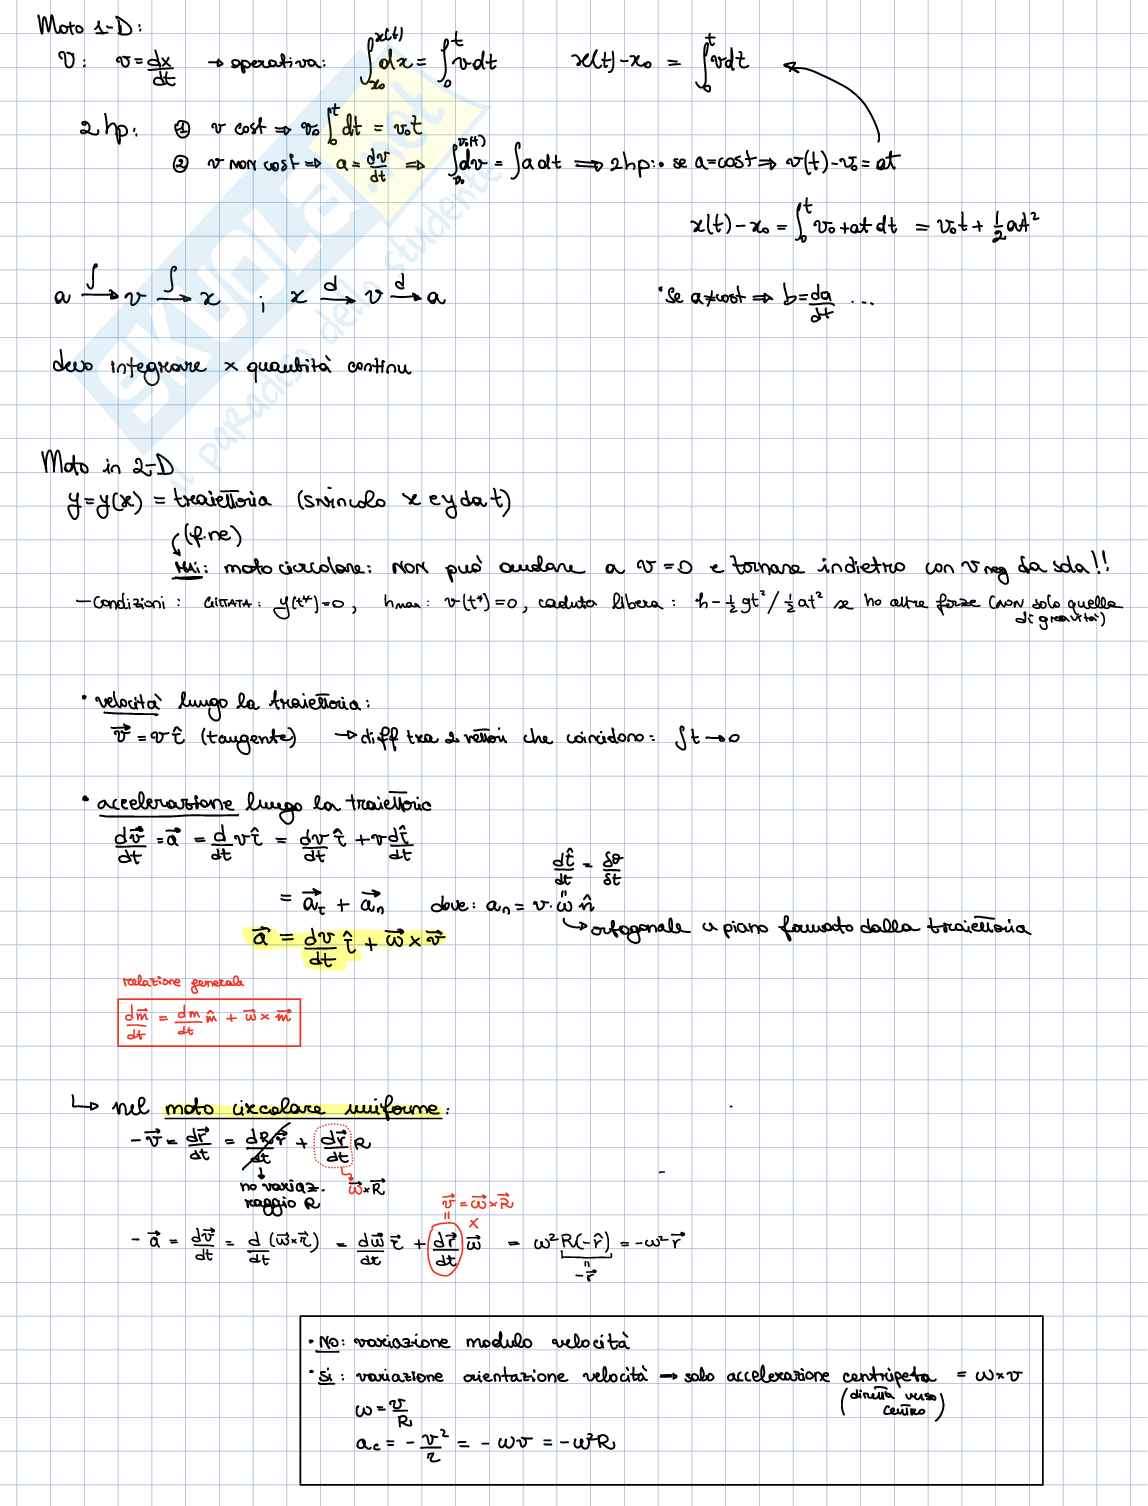 Moto 1-D:
v: v = dx/dt → operativa: ∫_{x₀}^{x(t)} dx = ∫_0^t v dt   x(t) - x₀ = ∫_0^t v dt
2 hp: ① v cost ⇒ v₀ ∫_0^t dt = v₀t
② v non cost ⇒ a = dv/dt ⇒ ∫_{v₀}^{v(t)} dv = ∫ a dt ⇒ 2 hp: • se a = cost ⇒ v(t) - v₀ = at
x(t) - x₀ = ∫_0^t v₀ + at dt = v₀t + 1/2 at²
a →∫ v →∫ x ; x →d v →d a
• se a ≠ cost ⇒ b = da/dt ...
devo integrare x quantità continu
Moto in 2-D
y = y(x) = traiettoria (svincolo x e y da t)
(f.ne)
MAI: moto circolare: NON può andare a v = 0 e tornare indietro con v neg da sola!!
- Condizioni: GITTATA: y(t*) = 0, h max: v(t*) = 0, caduta libera: h - 1/2 gt² / 1/2 at² se ho altre forze (non solo quella
di gravità)
• velocità lungo la traiettoria:
v⃗ = v τ̂ (tangente) → diff tra 2 vettori che coincidono: ∫ t → 0
• accelerazione lungo la traiettoria
dv⃗/dt = a⃗ = d/dt v τ̂ = dv/dt τ̂ + v dτ̂/dt
dt̂/dt = δθ/δt
= a⃗_t + a⃗_n   dove: a_n = v · ω n̂
↳ ortogonale a piano formato dalla traiettoria
a⃗ = dv/dt τ̂ + ω⃗ × v⃗
relazione generale
dm⃗/dt = dm/dt m̂ + ω⃗ × m⃗
↳ nel moto circolare uniforme:
- v⃗ = dr⃗/dt = dR/dt r̂ + dr⃗/dt R
no variaz. raggio R   ω⃗ × R⃗
v⃗ = ω⃗ × R⃗
- a⃗ = dv⃗/dt = d/dt (ω⃗ × r⃗) = dω⃗/dt r⃗ + dr⃗/dt × ω⃗ = ω² R(-r̂) = -ω² r⃗
= -r⃗
• NO: variazione modulo velocità
• SI: variazione orientazione velocità → solo accelerazione centripeta = ω × v
(diretta verso centro)
ω = v/R
a_c = - v²/r = - ωv = - ω²R
SKUOLA.net
il paradiso dello studente